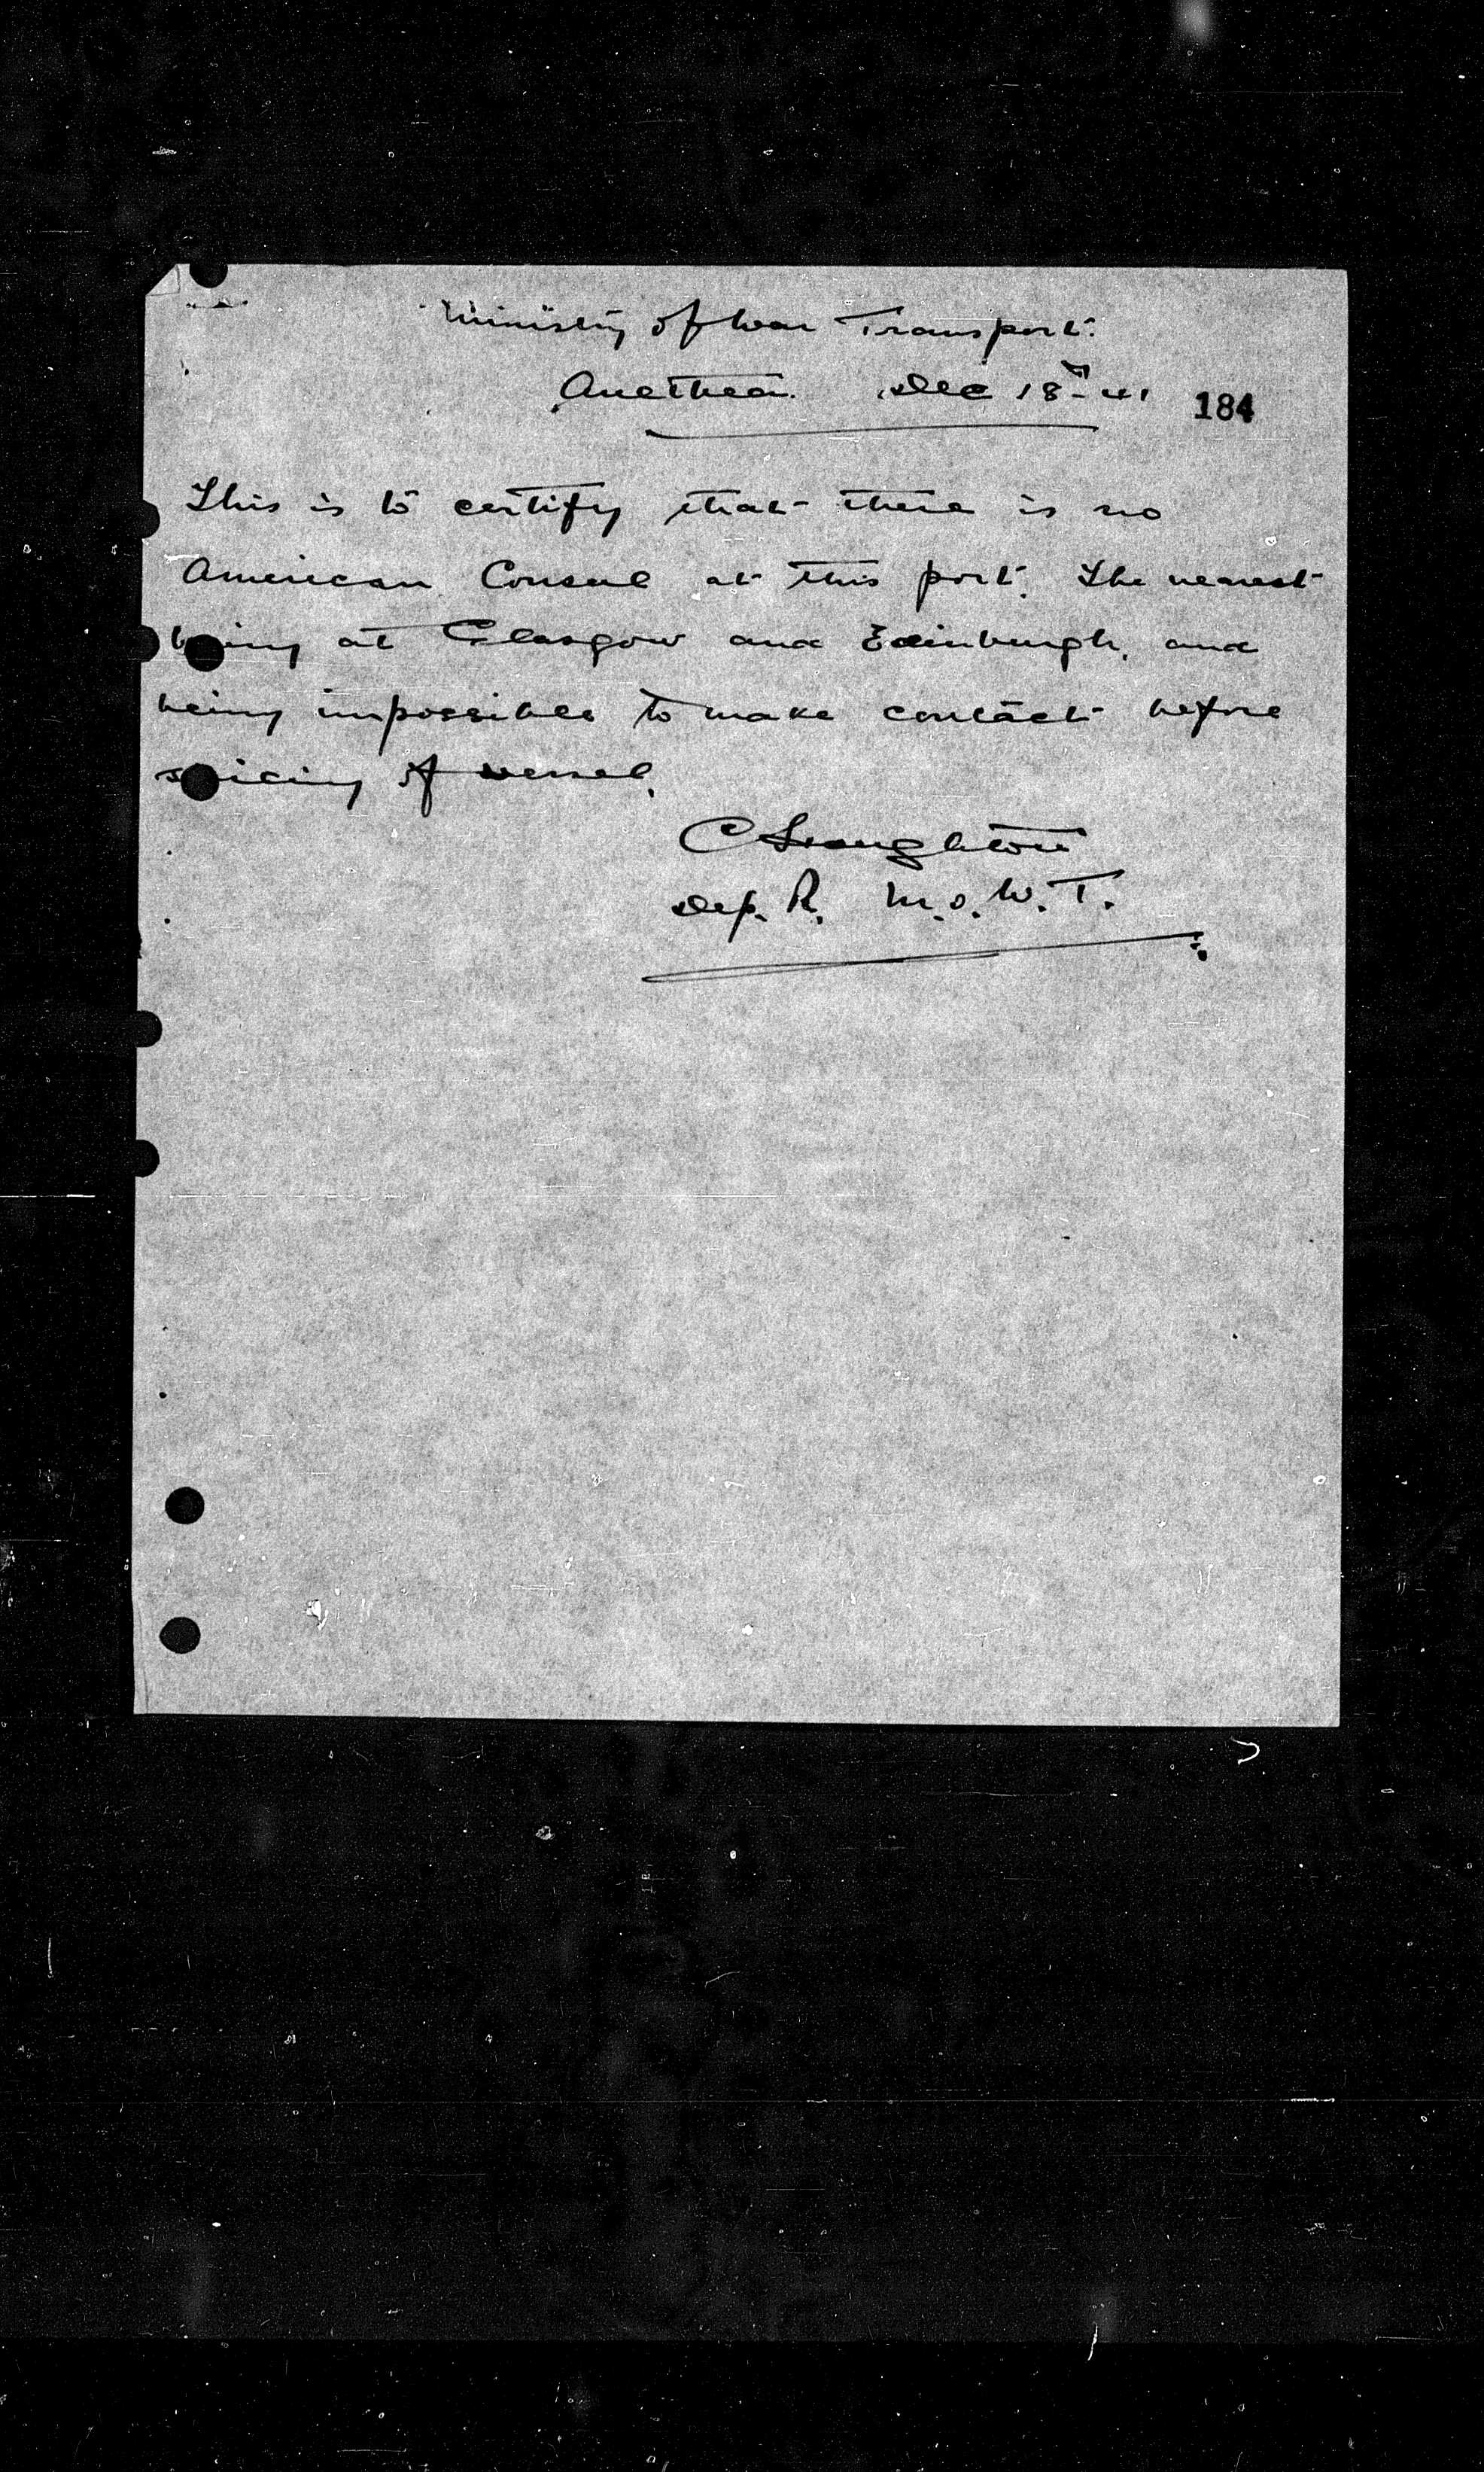 Ministry of War Transport.
Aultbea. Dec 18th 41
184
This is to certify that there is no
American Consul at this port. The nearest
being at Glasgow and Edinburgh, and
being impossible to make contact before
sailing of vessel.
C
Dep. R. M.o.W.T.